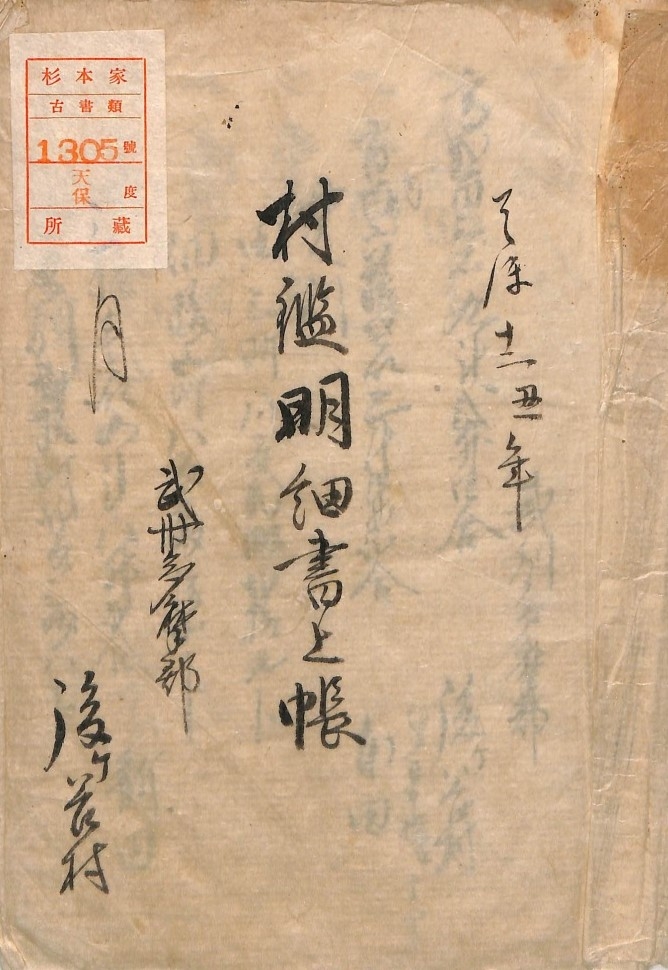 天保十二丑年
村鑑明細書上帳
月
武州多摩郡
後ヶ谷村
杉本家
古書類
1305號
天保 度
所藏